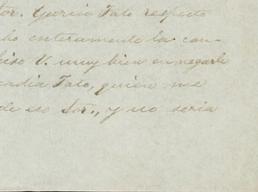 tor. García Tato respecto
cho enteramente la con-
hizo V. muy bien en negarle
andia Tato, quien me
de ese Sor., y no sería